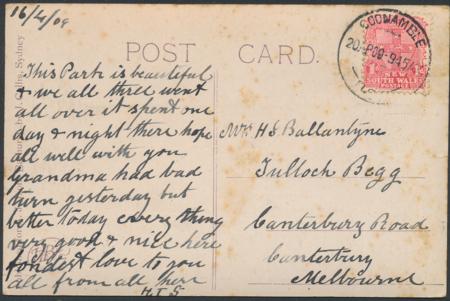 16/4/09
POST CARD.
This Park is beautiful
& we all three went
all over it spent one
day & night there hope
all well with you
Grandma had bad
turn yesterday but
better today every thing
very good & nice here
fondest love to you
all from all here
H.T.S
Mrs H S Ballantyne
Tulloch Begg
Canterbury Road
Canterbury
Melbourne
COONAMBLE
NEW
SOUTH WALES
POSTAGE
Sydney